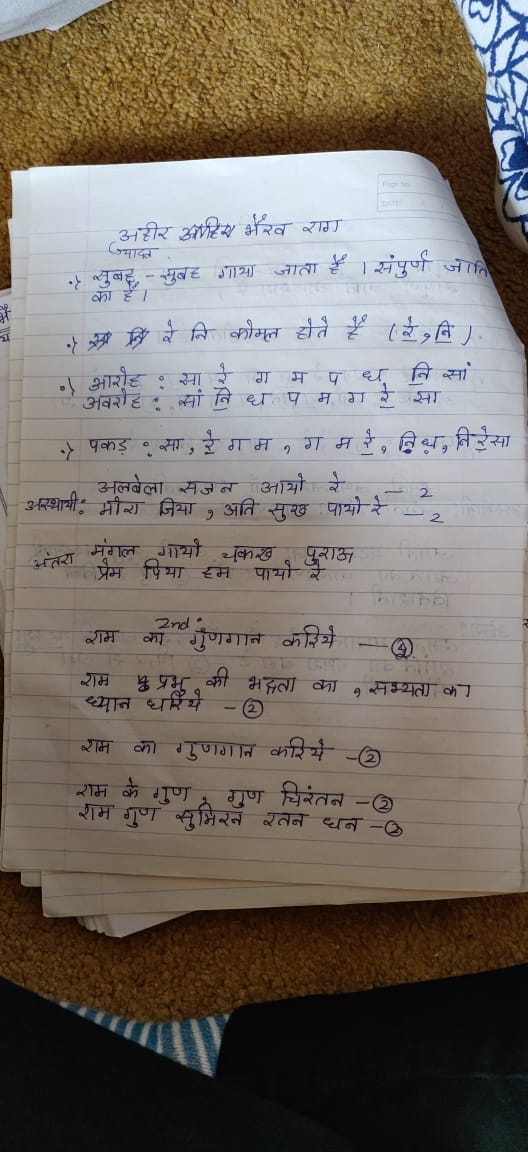 Page No.
DATE
अहीर भैरव राग
यादव
सुबह - सुबह गाया जाता है । संपुर्ण जाति
का है ।
रे नि कोमल होते है ( रे॒, नि॒ )
आरोह : सा रे॒ ग म प ध नि॒ सां
अवरोह : सां नि॒ ध प म ग रे॒ सा
पकड़ : सा, रे॒ ग म, ग म रे॒, नि़॒ ध़, नि॒ रे॒ सा
अलबेला सजन आयो रे - 2
अस्थायी : मोरा जिया, अति सुख पायो रे - 2
अंतरा मंगल गायो चकख पुराअ
प्रेम पिया हम पायो रे
2nd:
राम का गुणगान करिये - ④
राम प्रभु की भद्रता का, सभ्यता का
ध्यान धरिये - ②
राम का गुणगान करिये - ②
राम के गुण, गुण चिरंतन - ②
राम गुण सुमिरन रतन धन - ②